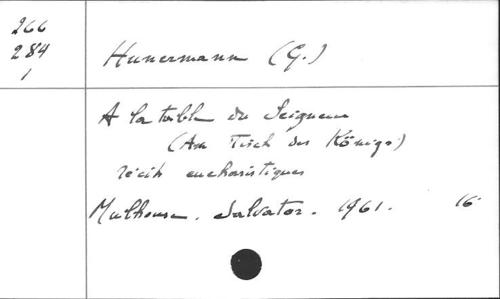 266
284
1
Hunermann (G.)
A la table du Seigneur
(Am Tisch des Königs)
récits eucharistiques
Mulhouse. Salvator. 1961. 16°